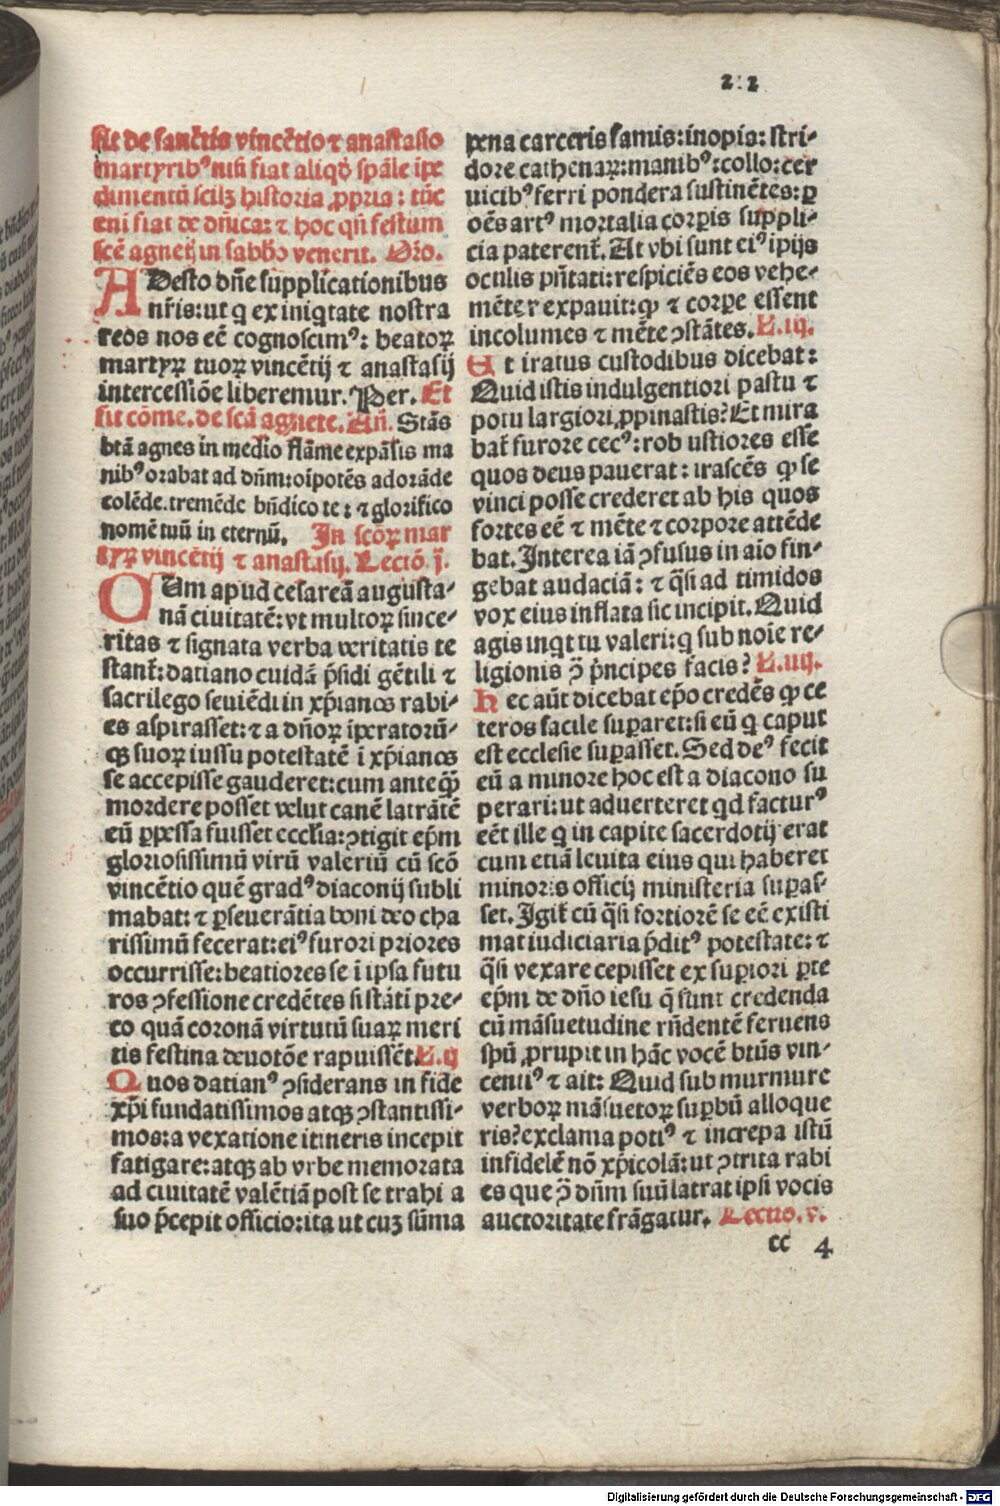 2:2
sit de sanctis vincẽtio ⁊ anastasio
martyribꝰ nisi fiat aliqḋ spãle ipe
dimentũ scilꝫ historia ꝓpria: tũc
eni fiat de dñica: ⁊ hoc qñ festum
scẽ agnetj in sabbo venerit. Oro.
ADesto dñe supplicationibus
nr̃is: ut q ex iniqtate nostra
reos nos eẽ cognoscimꝰ: beatoꝝ
martyꝝ tuoꝝ vincẽtij ⁊ anastasij
intercessiõe liberemur. Per. Et
fit cõme. de scã agnete. Añ. Stãs
btã agnes in medio flãme expãsis ma
nibꝰ orabat ad dñm: oĩpotẽs adorãde
colẽde. tremẽde bñdico te: ⁊ glorifico
nomẽ tuũ in eternũ. In scõꝝ mar
tyꝝ vincẽtij ⁊ anastasij. Lectõ j.
CUm apud cesareã augusta-
nã ciuitatẽ: vt multoꝝ since-
ritas ⁊ signata verba veritatis te
stant̃: datiano cuidã p̃sidi gẽtili ⁊
sacrilego seuiẽdi in xp̃ianos rabi-
es aspirasset: ⁊ a dñoꝝ iperatorũ-
qꝫ suoꝝ iussu potestatẽ ĩ xp̃ianos
se accepisse gauderet: cum anteq̃ꝫ
mordere posset velut canẽ latrãtẽ
eũ ꝑpessa fuisset ecclia: ꝯtigit ep̃m
gloriosissimũ virũ valeriũ cũ scõ
vincẽtio quẽ gradꝰ diaconij subli
mabat: ⁊ ꝑseuerãtia boni deo cha
rissimũ fecerat: eiꝰ furori priores
occurrisse: beatiores se ĩ ipsa futu
ros ꝯfessione credẽtes si stãtĩ pre-
co quã coronã virtutũ suaꝝ meri
tis festina deuotõe rapuissẽt. L. ij
Quos datianꝰ ꝯsiderans in fide
xp̃i fundatissimos atqꝫ ꝯstantissi-
mos: a vexatione itineris incepit
fatigare: atqꝫ ab vrbe memorata
ad ciuitatẽ valẽtiã post se trahi a
suo p̃cepit officio: ita ut cuꝫ sũma
pena carceris famis: inopia: stri-
dore cathenaꝝ: manibꝰ: collo: cer
uicibꝰ ferri pondera sustinẽtes: ꝑ
oẽs artꝰ mortalia corꝑis suppli-
cia paterent̃. At vbi sunt eiꝰ ipijs
oculis pñtati: respiciẽs eos vehe-
mẽter expauit: ꝙ ⁊ corꝑe essent
incolumes ⁊ mẽte ꝯstãtes. L. iij.
Et iratus custodibus dicebat:
Quid istis indulgentiori pastu ⁊
potu largiori, ꝓpinastis? Et mira
bat̃ furore cecꝰ: robustiores esse
quos deus pauerat: irascẽs ꝙ se
vinci posse crederet ab his quos
fortes eẽ ⁊ mẽte ⁊ corpore attẽde
bat. Interea iã ꝯfusus in aĩo fin-
gebat audaciã: ⁊ q̃si ad timidos
vox eius inflata sic incipit. Quid
agis inqt tu valeri: q sub noĩe re-
ligionis ꝯ̃ p̃ncipes facis? L. iiij.
Hec aũt dicebat ep̃o credẽs ꝙ ce
teros facile suꝑaret: si eũ q caput
est ecclesie suꝑasset. Sed deꝰ fecit
eũ a minore hoc est a diacono su
perari: ut aduerteret qd facturꝰ
eẽt ille q in capite sacerdotij erat
cum etiã leuita eius qui haberet
minoris officij ministeria suꝑas-
set. Igit̃ cũ q̃si fortiorẽ se eẽ existi
mat iudiciaria p̃ditꝰ potestate: ⁊
q̃si vexare cepisset ex suꝑiori ꝑte
ep̃m de dño iesu q̃ sunt credenda
cũ mãsuetudine rñdentẽ feruens
spũ ꝓrupit in hãc vocẽ btũs vin-
centiꝰ ⁊ ait: Quid sub murmure
verboꝝ mãsuetoꝝ suꝑbũ alloque
ris? exclama potiꝰ ⁊ increpa istũ
infidelẽ nõ xp̃icolã: ut ꝯtrita rabi
es que ꝯ̃ dñm suũ latrat ipsi vocis
auctoritate frãgatur. Lectio. v.
cc 4
Digitalisierung gefördert durch die Deutsche Forschungsgemeinschaft - DFG